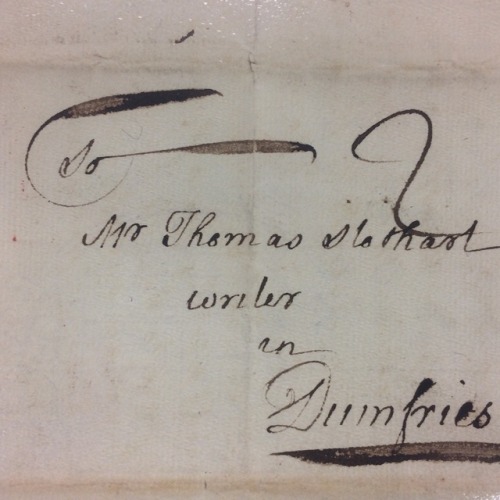 To 2
Mr Thomas Stothart
writer
in
Dumfries